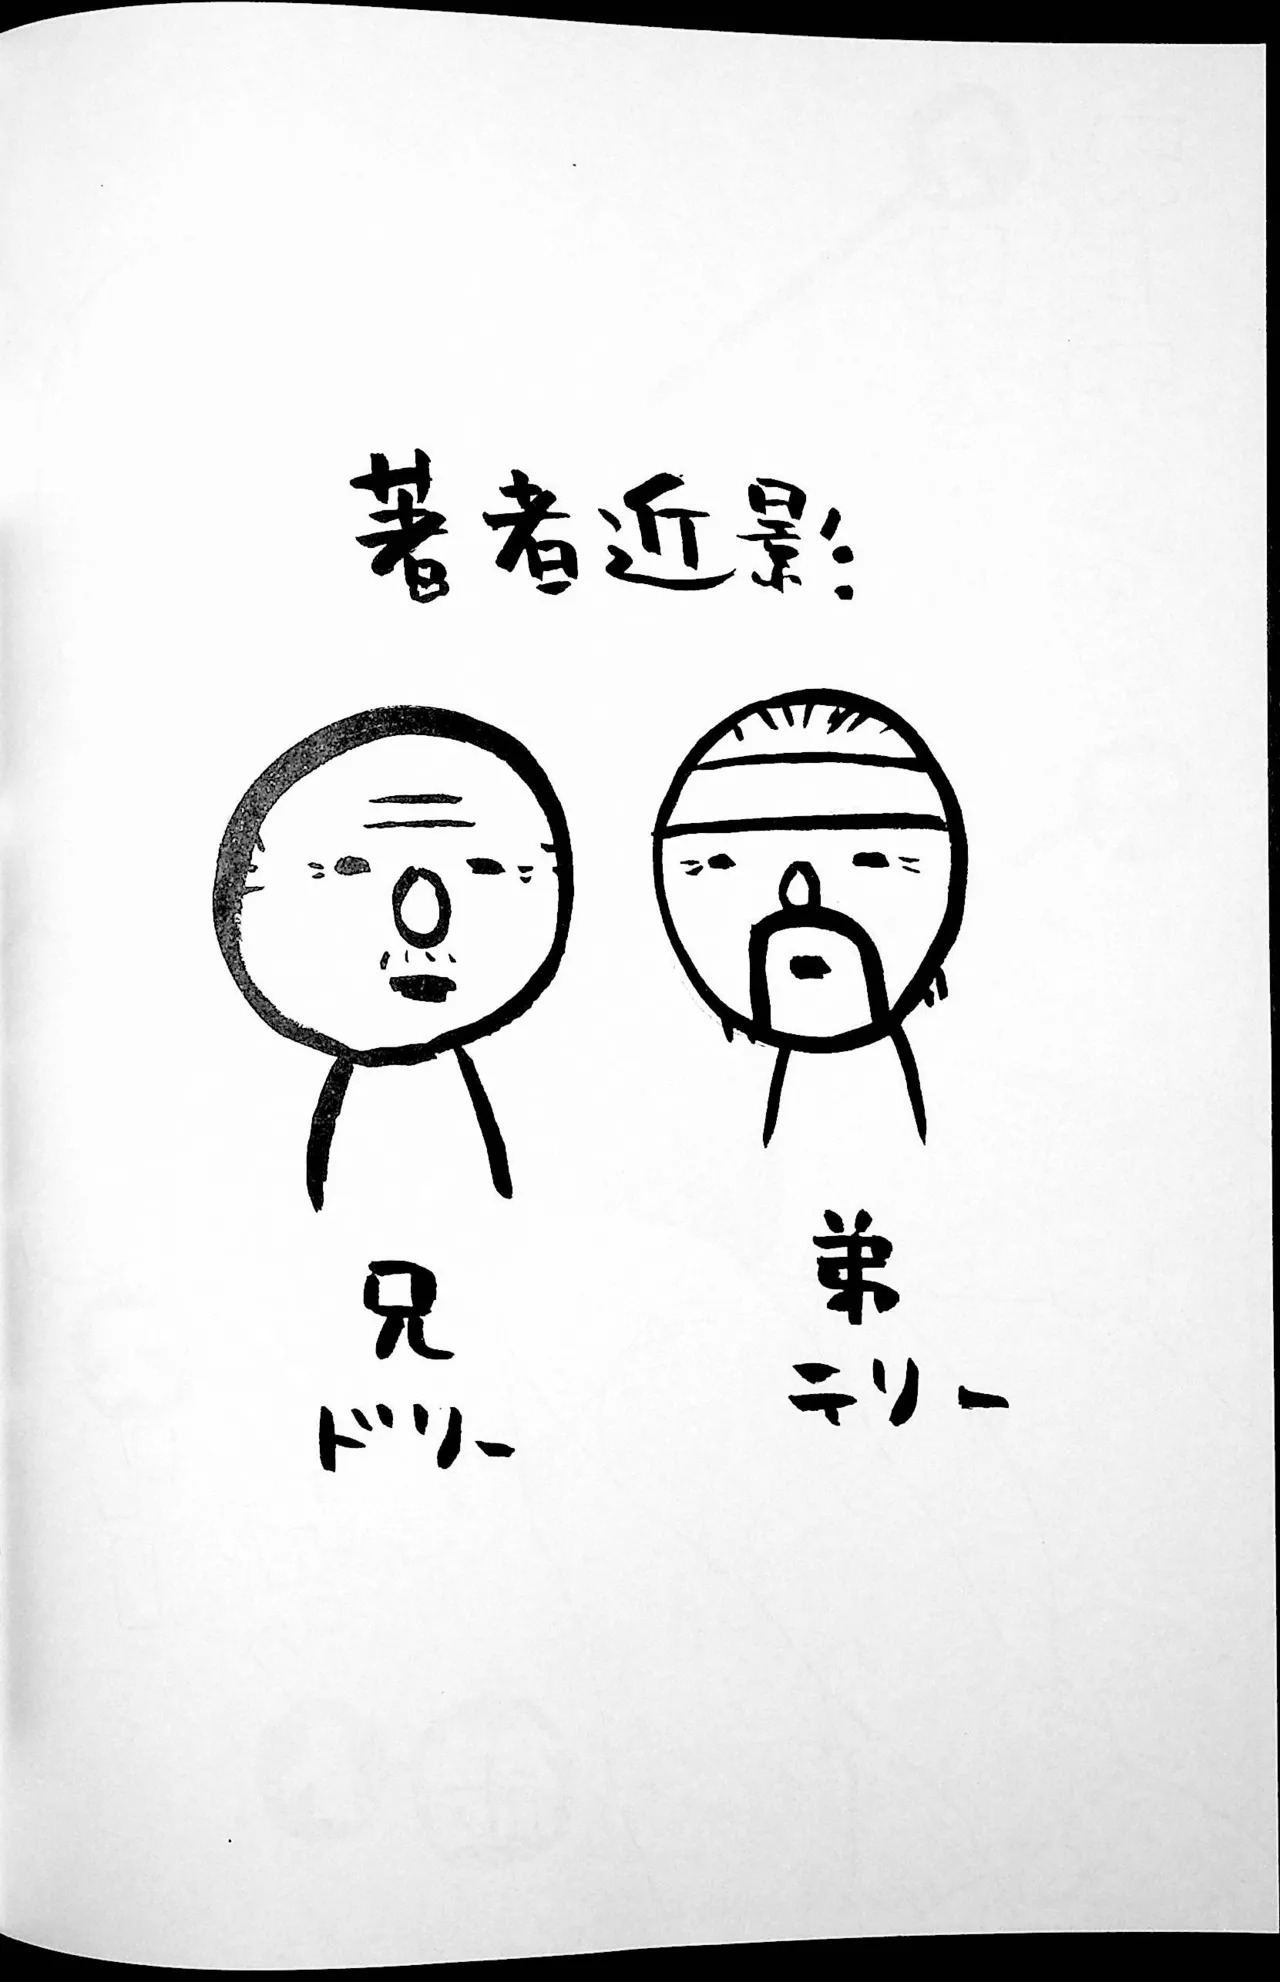 著者近影
兄
ドリー
弟
テリー